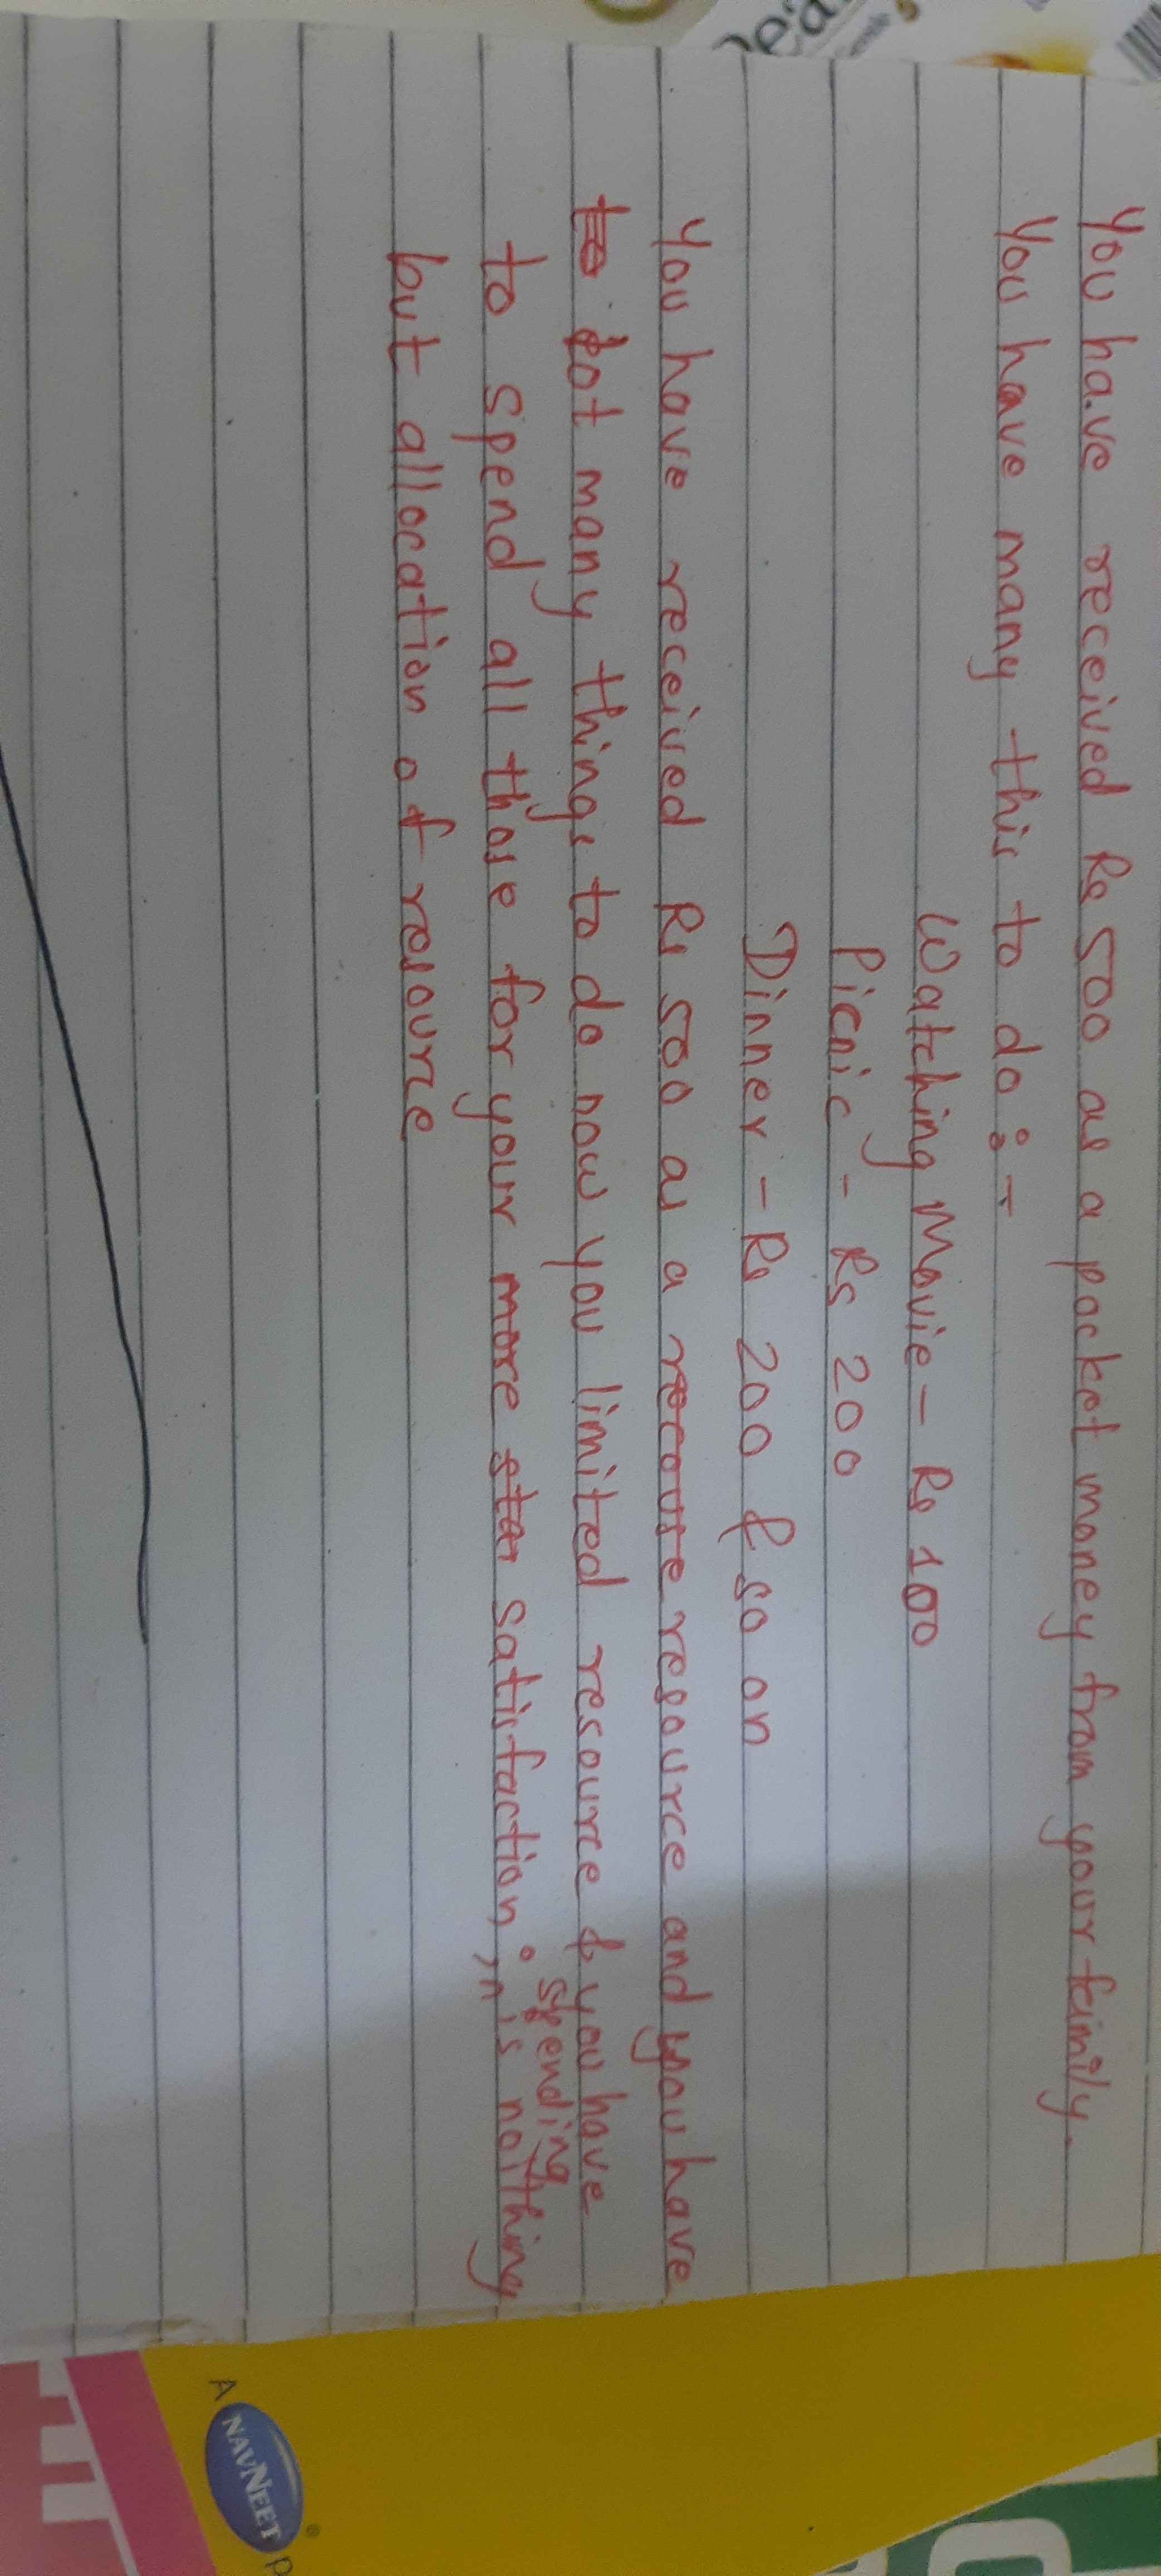 You have received Rs 500 as a pocket money from your family.
You have many this to do :-
Watching Movie - Rs 100
Picnic - Rs 200
Dinner - Rs 200 & so on
You have received Rs 500 as a resource and you have
lot many things to do now you limited resource & you have
to spend all those for your more satisfaction. spending in is nothing
but allocation of resource
A NAVNEET P